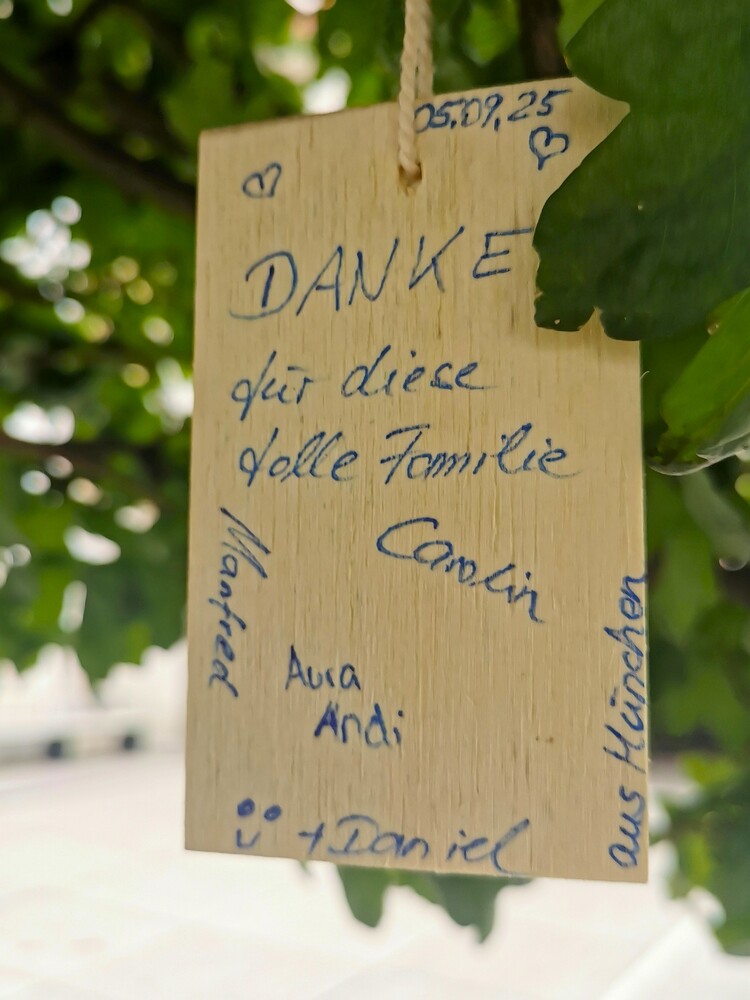 05.09.25
DANKE
für diese
tolle Familie
Carolin
Manfred
Aura
Andi
+ Daniel
aus München